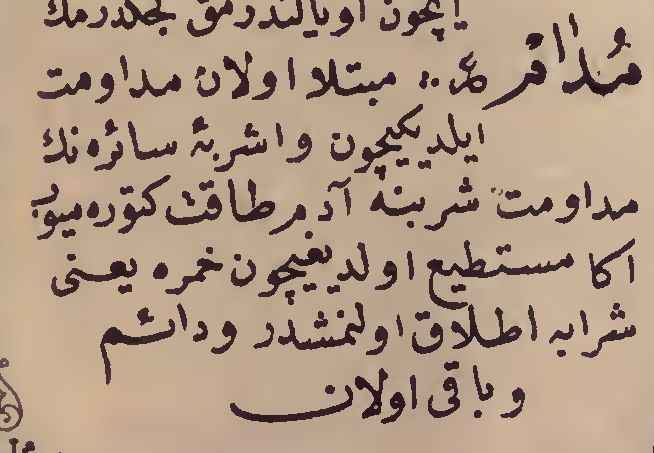 ایچون اویاللندرمق
مُدَامْ مبتلا اولان مداومت
ایلدیکیچون و اشربهٔ سائره نك
مداومت شربنه آدم طاقت کتوره میوب
اکا مستطیع اولدیغیچون خمره یعنی
شرابه اطلاق اولنمشدر و دائم
و باقی اولان